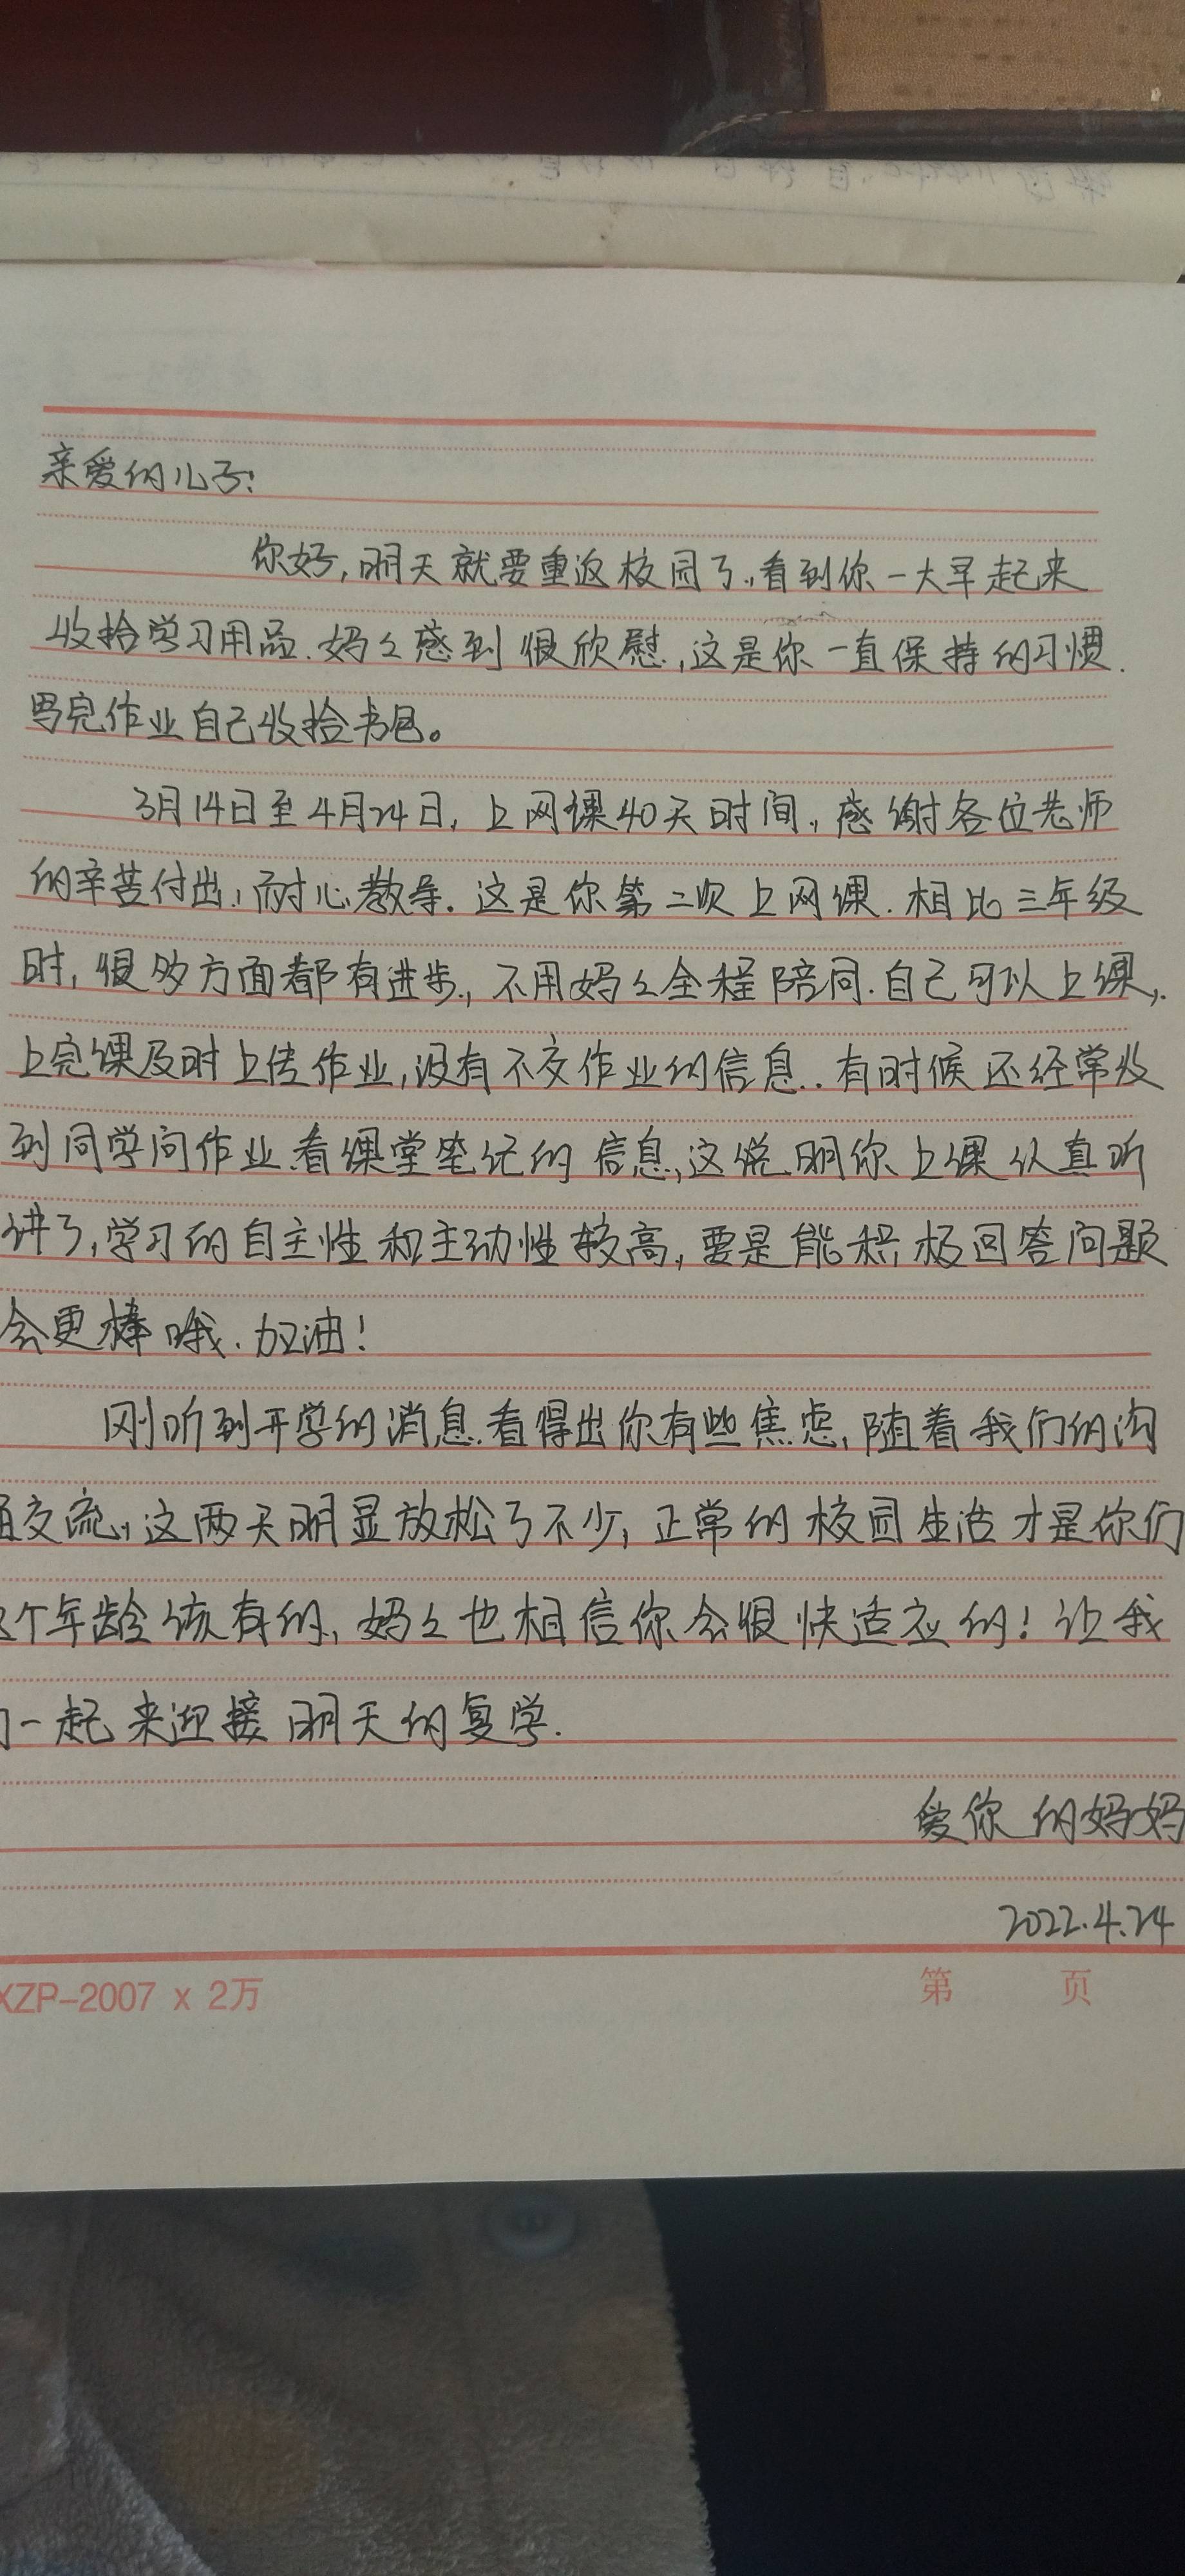 亲爱的儿子:
你好,明天就要重返校园了,看到你一大早起来
收拾学习用品.妈々感到很欣慰,这是你一直保持的习惯.
写完作业自己收拾书包。
3月14日至4月24日,上网课40天时间,感谢各位老师
的辛苦付出,耐心教导.这是你第二次上网课.相比三年级
时,很多方面都有进步,不用妈々全程陪同.自己可以上课,
上完课及时上传作业,没有不交作业的信息..有时候还经常收
到同学问作业.看课堂笔记的信息,这说明你上课认真听
讲了,学习的自主性和主动性较高,要是能积极回答问题
会更棒哦.加油!
刚听到开学的消息.看得出你有些焦虑,随着我们的沟
通交流,这两天明显放松了不少,正常的校园生活才是你们
这个年龄该有的,妈々也相信你会很快适应的!让我
们一起来迎接明天的复学.
爱你的妈妈
2022.4.24
XZP-2007 x 2万 第 页